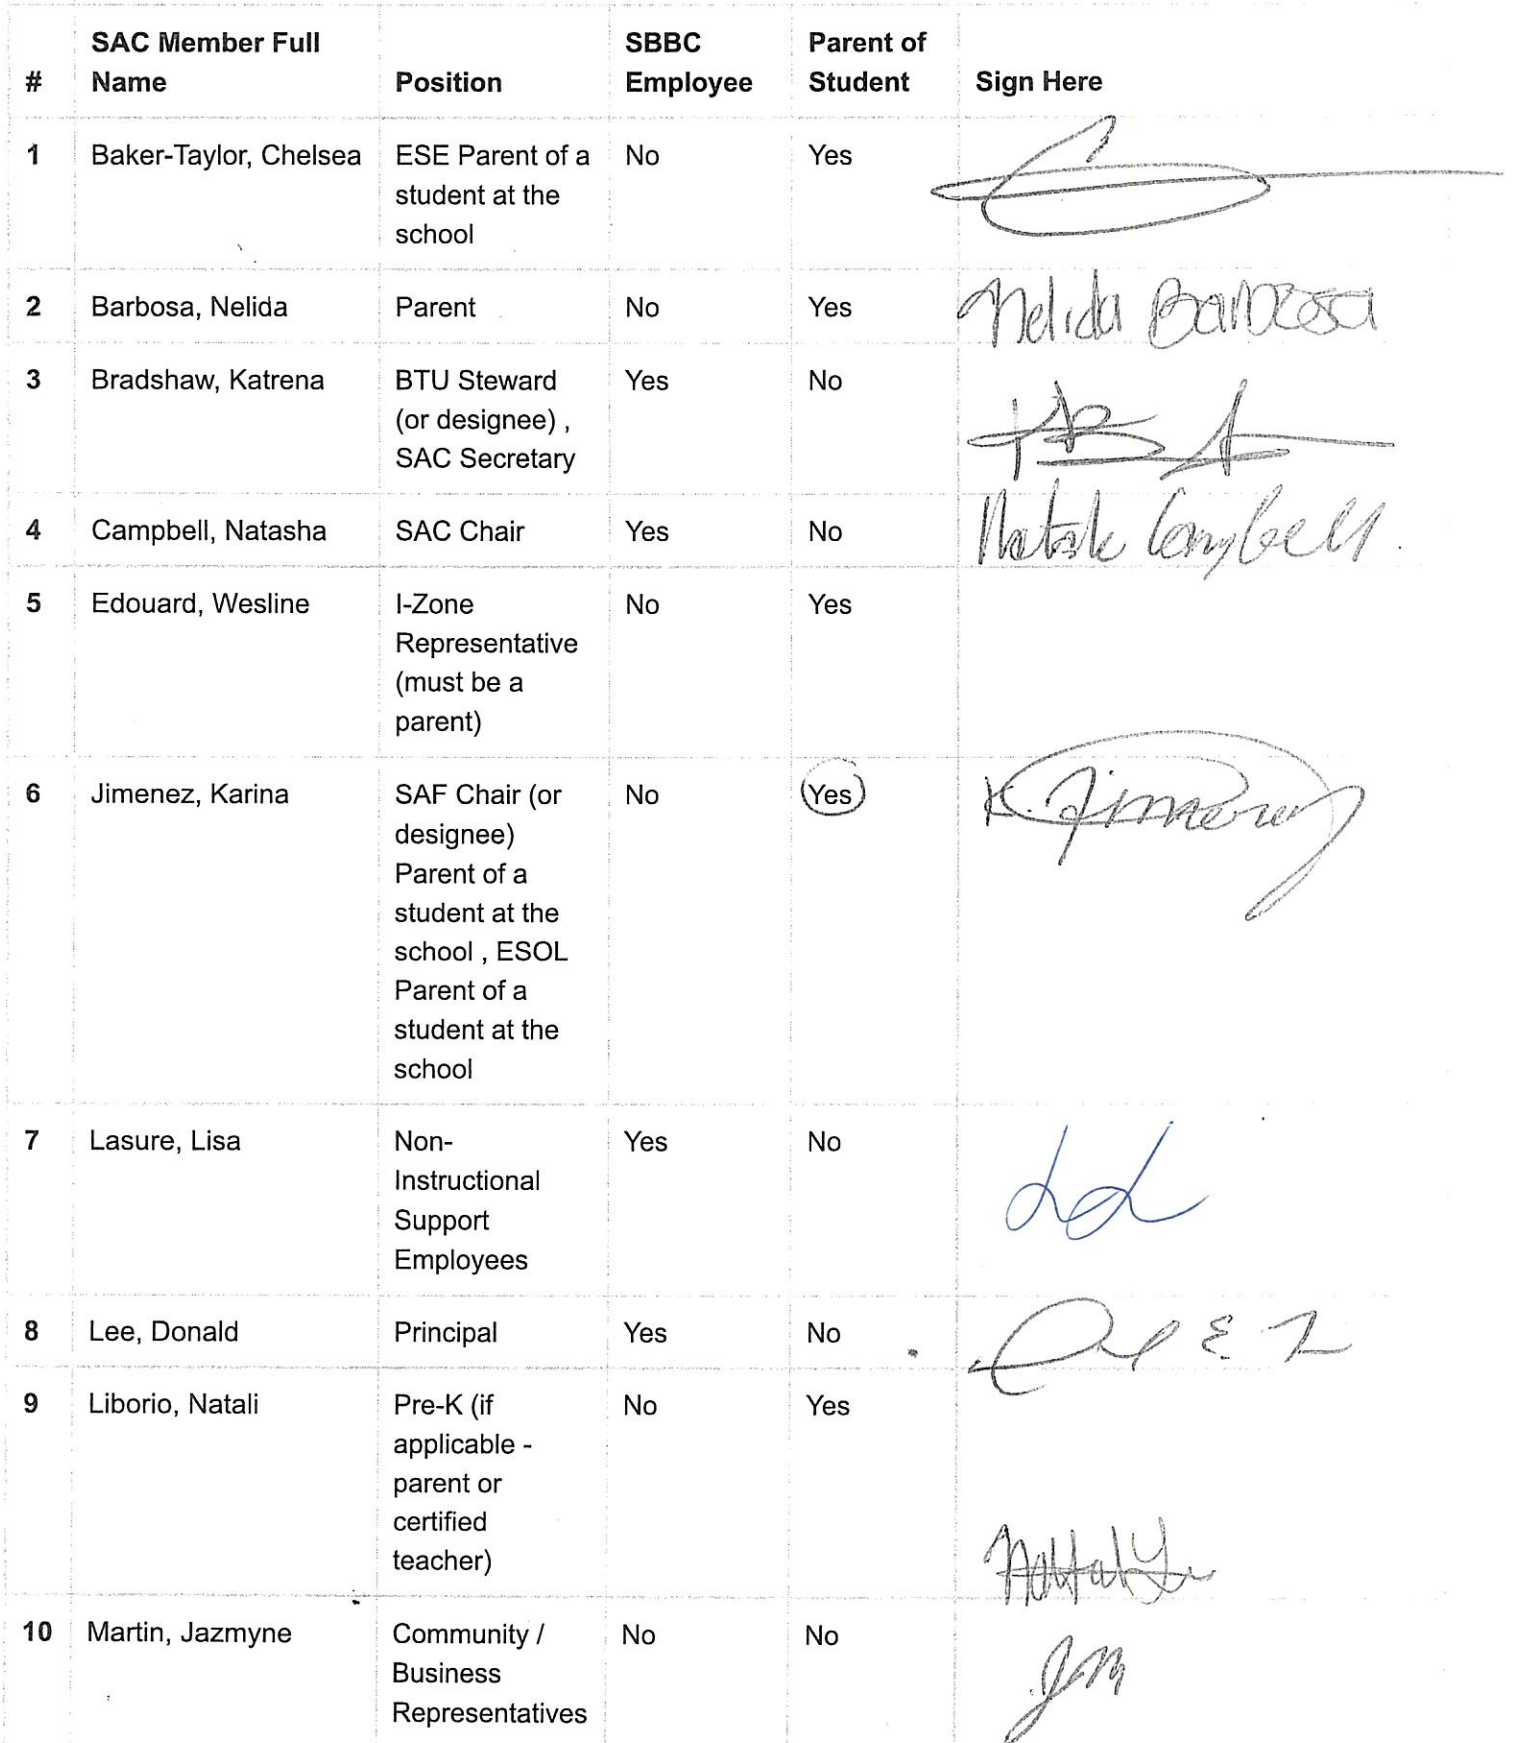 # SAC Member Full Name Position SBBC Employee Parent of Student Sign Here
1 Baker-Taylor, Chelsea ESE Parent of a No Yes
student at the
school
2 Barbosa, Nelida Parent No Yes Nelida Barbosa
3 Bradshaw, Katrena BTU Steward Yes No
(or designee) ,
SAC Secretary
4 Campbell, Natasha SAC Chair Yes No Natasha Campbell
5 Edouard, Wesline I-Zone No Yes
Representative
(must be a
parent)
6 Jimenez, Karina SAF Chair (or No Yes K. Jimenez
designee)
Parent of a
student at the
school , ESOL
Parent of a
student at the
school
7 Lasure, Lisa Non- Yes No
Instructional
Support
Employees
8 Lee, Donald Principal Yes No
9 Liborio, Natali Pre-K (if No Yes
applicable -
parent or
certified
teacher)
10 Martin, Jazmyne Community / No No JM
Business
Representatives